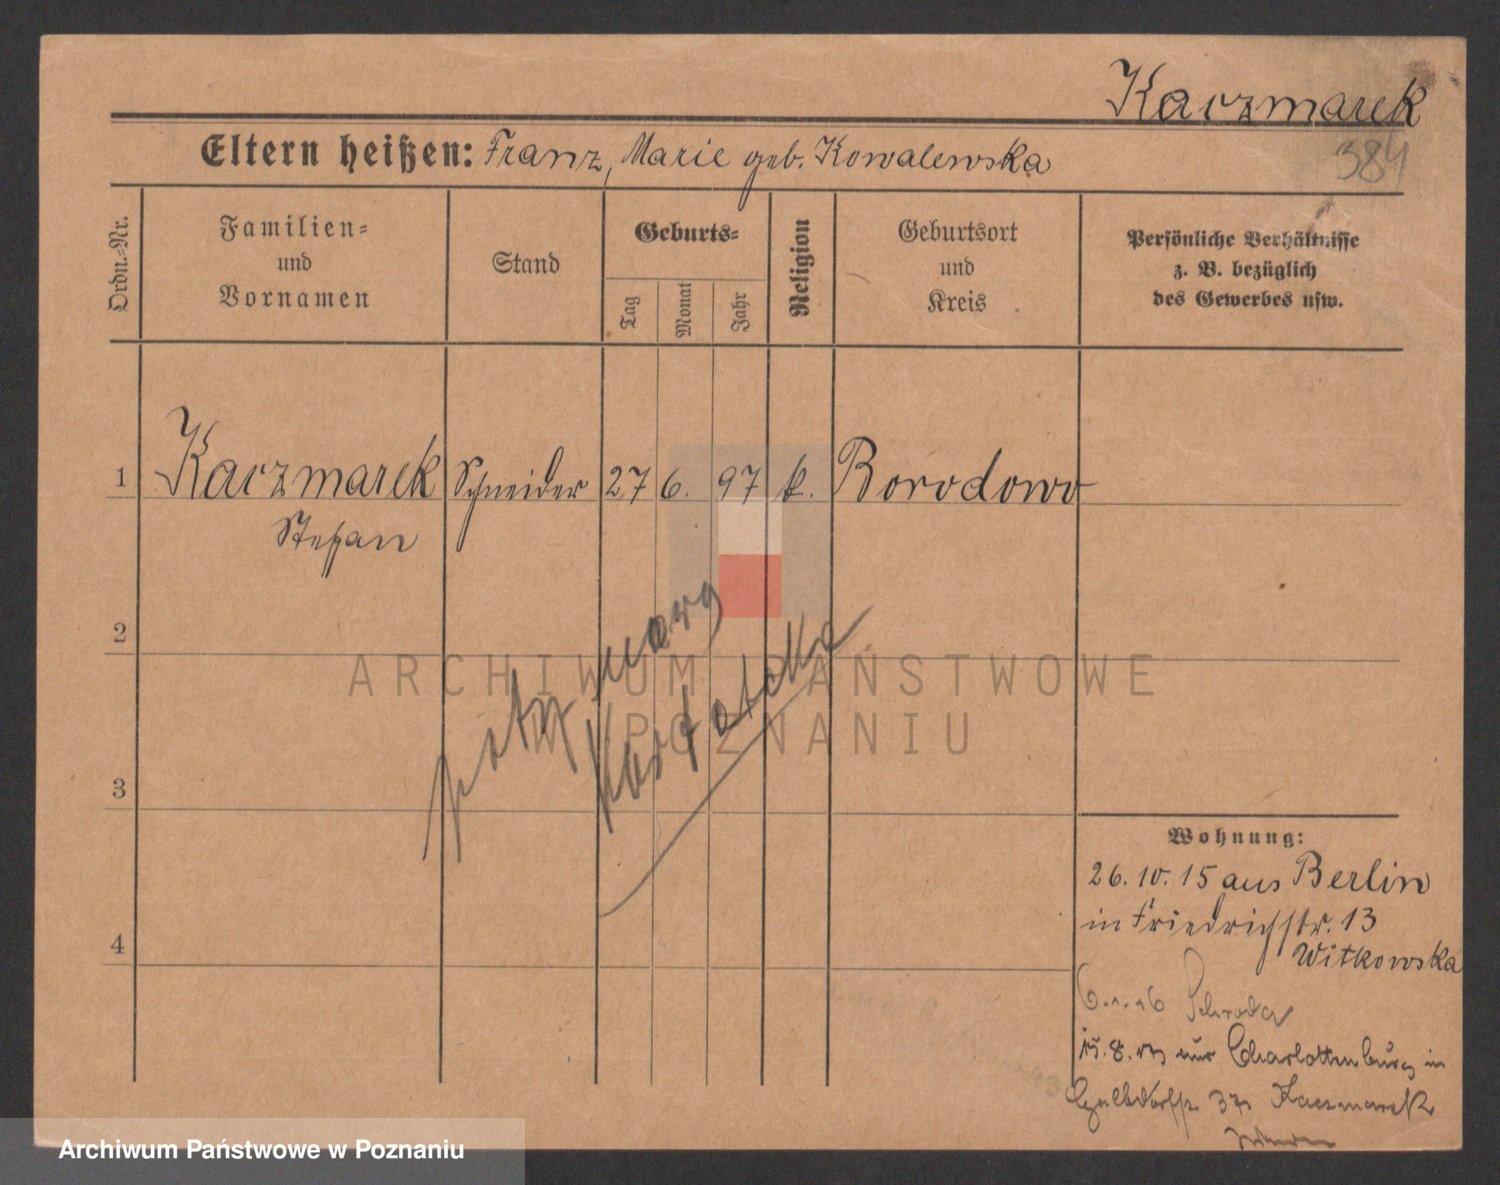 Kaczmarek
384
Eltern heißen: Franz, Marie geb. Kowalewska
Ordn.-Nr.
Familien-
und
Vornamen
Stand
Geburts-
Tag
Monat
Jahr
Religion
Geburtsort
und
Kreis
Persönliche Verhältnisse
z. B. bezüglich
des Gewerbes usw.
1 Kaczmarek Schneider 27 6. 97 k. Borodowo
Stefan
2
ARCHIWUM PAŃSTWOWE
W POZNANIU
3
4
Wohnung:
26.10.15 aus Berlin
in Friedrichstr. 13
Witkowska
6.1.16 Schroda
15.8. aus Charlottenburg in
Kaczmarek
Archiwum Państwowe w Poznaniu